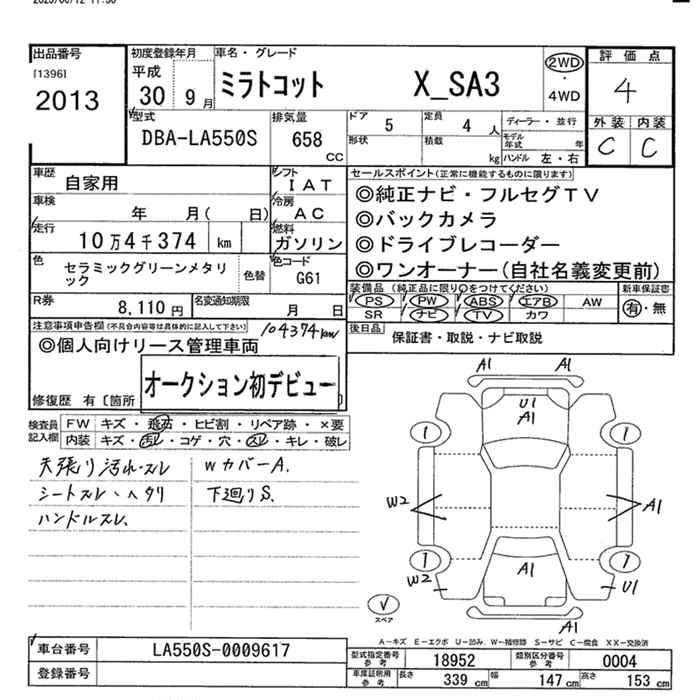 出品番号
[1396]
2013
初度登録年月
平成
30 9月
車名・グレード
ミラトコット X_SA3
2WD
・
4WD
評価点
4
外装 内装
C C
型式
DBA-LA550S
排気量
658
CC
ドア 5
定員 4 人
ディーラー・並行
形状
積載 kg
モデル年式 年
ハンドル 左・右
車歴
自家用
シフト
IAT
車検
年 月( 日)
冷房
AC
走行
10万4千374 km
燃料
ガソリン
色
セラミックグリーンメタリック
色替
色コード
G61
R券
8,110円
名変通知期限
月 日
セールスポイント(正常に機能するものに限ります)
◎純正ナビ・フルセグTV
◎バックカメラ
◎ドライブレコーダー
◎ワンオーナー(自社名義変更前)
装備品 (純正品に限り○をつけてください)
新車保証書
PS PW ABS エアB AW
有・無
SR ナビ TV カワ
後日品
保証書・取説・ナビ取説
注意事項申告欄(不具合内容等は具体的に記入して下さい)
104374km
◎個人向けリース管理車両
オークション初デビュー
修復歴 有 [箇所 ]
検査員記入欄
FW キズ・飛石・ヒビ割・リペア跡・×要
内装 キズ・汚レ・コゲ・穴・スレ・キレ・破レ
天張り汚れ・スレ
シートスレ・ヘタリ
ハンドルスレ
WカバーA.
下廻りS.
A1 A1
U1
A1
1 1
W2
A1
1 1
W2
A1
U1
スペア
A1
A-キズ E-エクボ U-凹み W-補修跡 S-サビ C-腐食 XX-交換済
車台番号
LA550S-0009617
登録番号
型式指定番号 参考
18952
類別区分番号 参考
0004
車庫証明用 参考
長さ 339 cm
幅 147 cm
高さ 153 cm